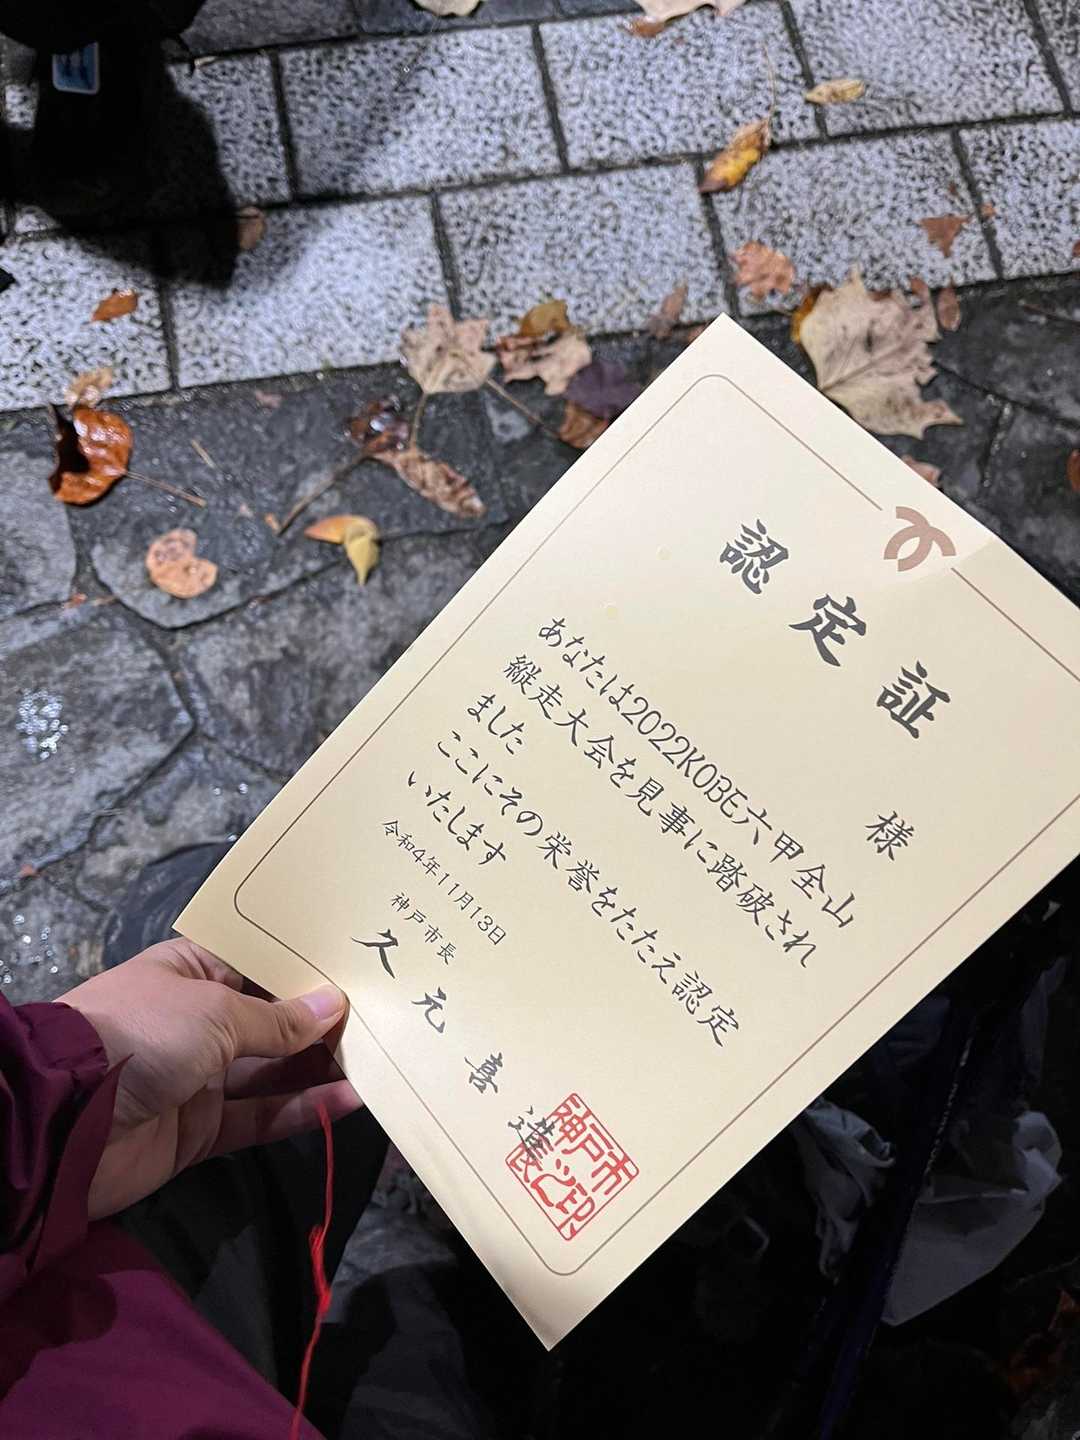 認定証
様
あなたは2022KOBE六甲全山
縦走大会を見事に踏破され
ました
ここにその栄誉をたたえ認定
いたします
令和4年11月13日
神戸市長
久元喜造
神戸市
長之印